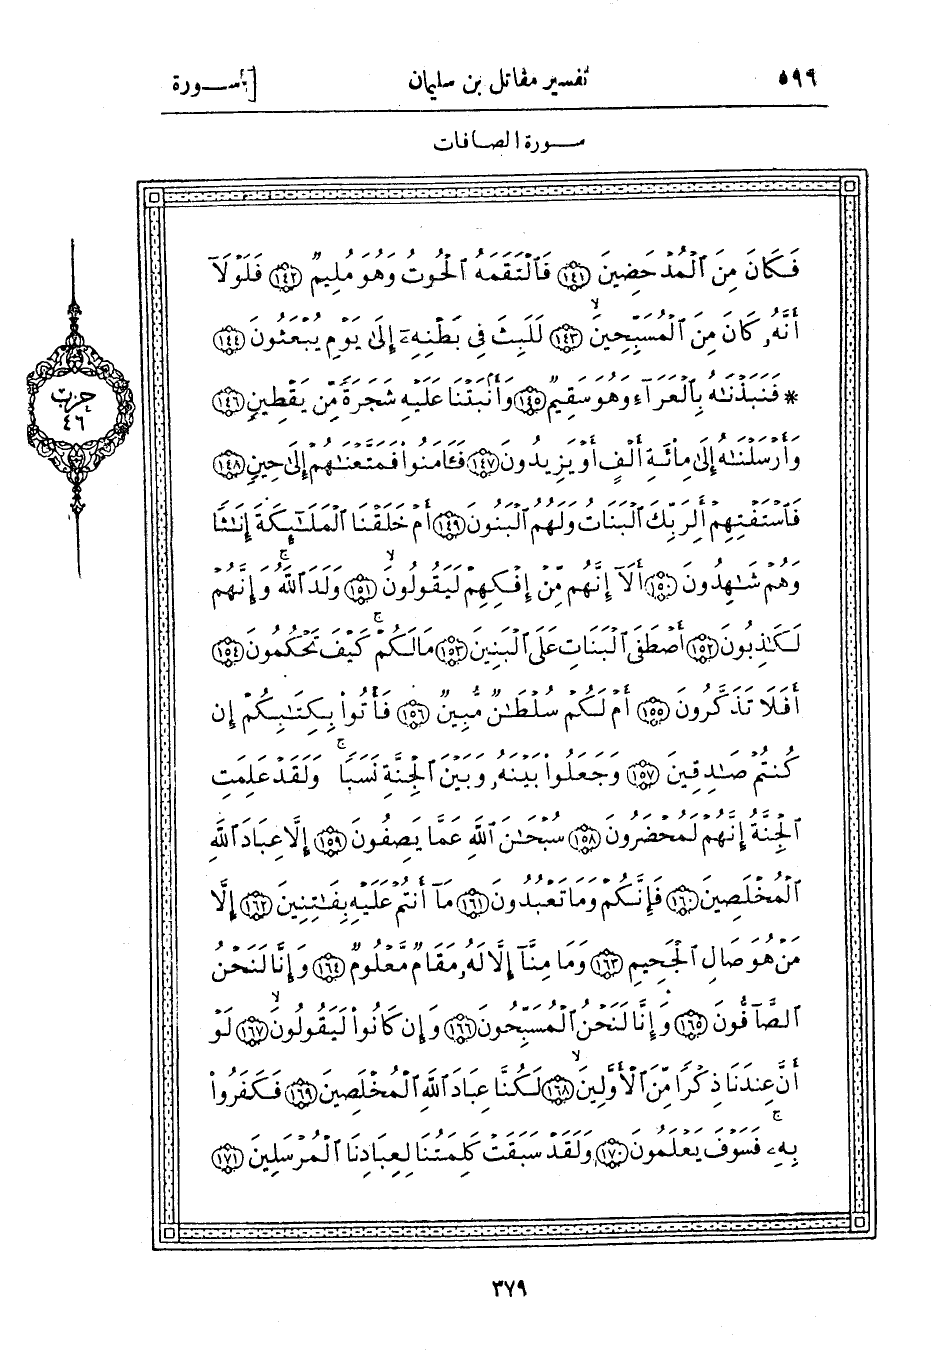 ٥٩٩ تفسير مقاتل بن سليمان [سـورة
سـورة الصـافات
فَكَانَ مِنَ ٱلْمُدْحَضِينَ ١٤١ فَٱلْتَقَمَهُ ٱلْحُوتُ وَهُوَ مُلِيمٌ ١٤٢ فَلَوْلَآ
أَنَّهُۥ كَانَ مِنَ ٱلْمُسَبِّحِينَ ١٤٣ لَلَبِثَ فِى بَطْنِهِۦٓ إِلَىٰ يَوْمِ يُبْعَثُونَ ١٤٤
* فَنَبَذْنَٰهُ بِٱلْعَرَآءِ وَهُوَ سَقِيمٌ ١٤٥ وَأَنۢبَتْنَا عَلَيْهِ شَجَرَةً مِّن يَقْطِينٍ ١٤٦
حزب
٤٦
وَأَرْسَلْنَٰهُ إِلَىٰ مِا۟ئَةِ أَلْفٍ أَوْ يَزِيدُونَ ١٤٧ فَـَٔامَنُوا۟ فَمَتَّعْنَٰهُمْ إِلَىٰ حِينٍ ١٤٨
فَٱسْتَفْتِهِمْ أَلِرَبِّكَ ٱلْبَنَاتُ وَلَهُمُ ٱلْبَنُونَ ١٤٩ أَمْ خَلَقْنَا ٱلْمَلَٰٓئِكَةَ إِنَٰثًا
وَهُمْ شَٰهِدُونَ ١٥٠ أَلَآ إِنَّهُم مِّنْ إِفْكِهِمْ لَيَقُولُونَ ١٥١ وَلَدَ ٱللَّهُ وَإِنَّهُمْ
لَكَٰذِبُونَ ١٥٢ أَصْطَفَى ٱلْبَنَاتِ عَلَى ٱلْبَنِينَ ١٥٣ مَالَكُمْ كَيْفَ تَحْكُمُونَ ١٥٤
أَفَلَا تَذَكَّرُونَ ١٥٥ أَمْ لَكُمْ سُلْطَٰنٌ مُّبِينٌ ١٥٦ فَأْتُوا۟ بِكِتَٰبِكُمْ إِن
كُنتُمْ صَٰدِقِينَ ١٥٧ وَجَعَلُوا۟ بَيْنَهُۥ وَبَيْنَ ٱلْجِنَّةِ نَسَبًا وَلَقَدْ عَلِمَتِ
ٱلْجِنَّةُ إِنَّهُمْ لَمُحْضَرُونَ ١٥٨ سُبْحَٰنَ ٱللَّهِ عَمَّا يَصِفُونَ ١٥٩ إِلَّا عِبَادَ ٱللَّهِ
ٱلْمُخْلَصِينَ ١٦٠ فَإِنَّكُمْ وَمَا تَعْبُدُونَ ١٦١ مَآ أَنتُمْ عَلَيْهِ بِفَٰتِنِينَ ١٦٢ إِلَّا
مَنْ هُوَ صَالِ ٱلْجَحِيمِ ١٦٣ وَمَا مِنَّآ إِلَّا لَهُۥ مَقَامٌ مَّعْلُومٌ ١٦٤ وَإِنَّا لَنَحْنُ
ٱلصَّآفُّونَ ١٦٥ وَإِنَّا لَنَحْنُ ٱلْمُسَبِّحُونَ ١٦٦ وَإِن كَانُوا۟ لَيَقُولُونَ ١٦٧ لَوْ
أَنَّ عِندَنَا ذِكْرًا مِّنَ ٱلْأَوَّلِينَ ١٦٨ لَكُنَّا عِبَادَ ٱللَّهِ ٱلْمُخْلَصِينَ ١٦٩ فَكَفَرُوا۟
بِهِۦ فَسَوْفَ يَعْلَمُونَ ١٧٠ وَلَقَدْ سَبَقَتْ كَلِمَتُنَا لِعِبَادِنَا ٱلْمُرْسَلِينَ ١٧١
٣٧٩